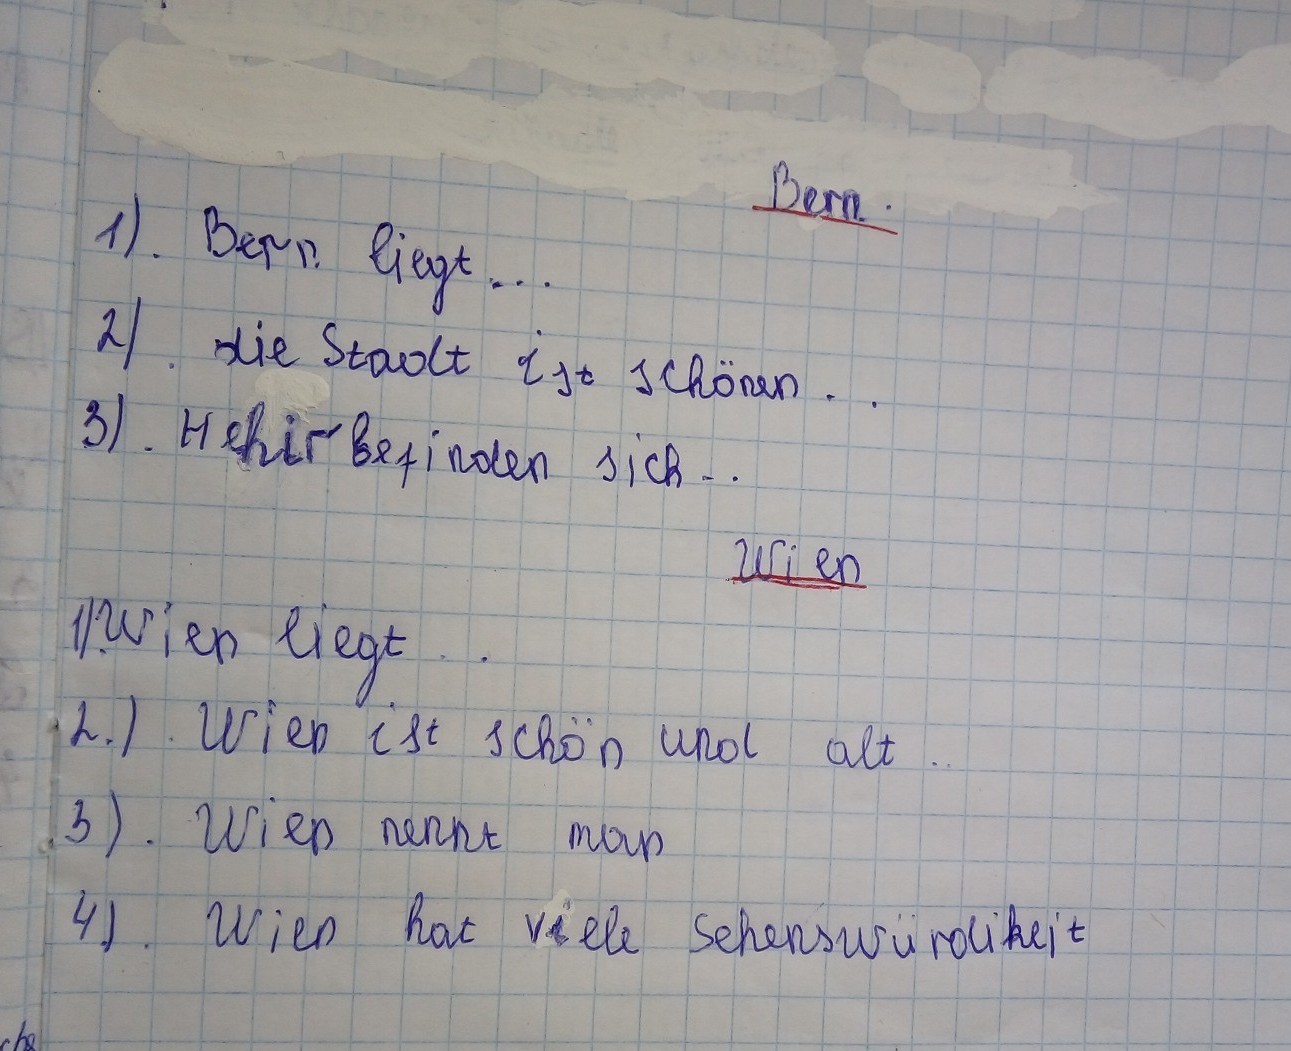 Bern.
1). Bern liegt...
2). die Stadt ist schönen...
3). Hehir befinden sich...
Wien
1). Wien liegt...
2.). Wien ist schön und alt..
3). Wien nennt man
4). Wien hat viele Sehenswürdikeit